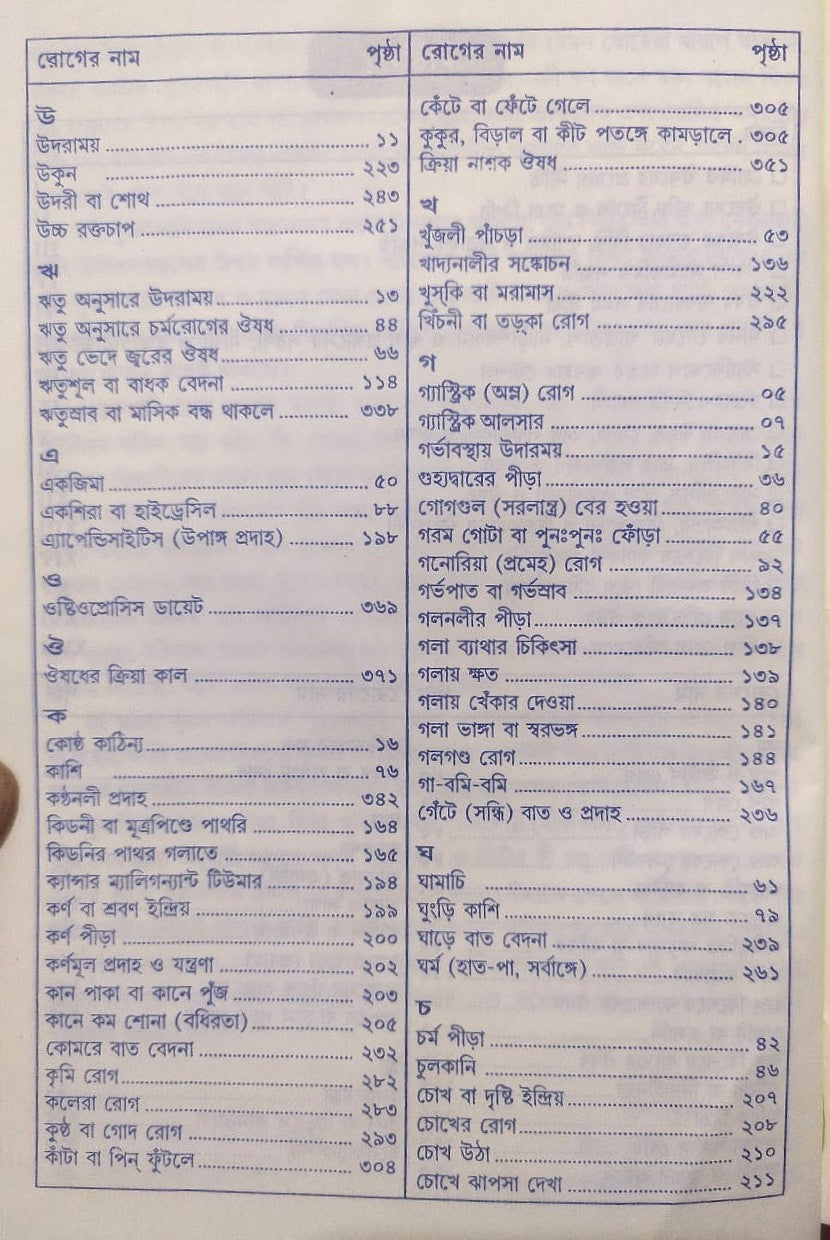 রোগের নাম পৃষ্ঠা
উ
উদরাময় ........ ১১
উকুন ........ ২২৩
উদরী বা শোথ ........ ২৪৩
উচ্চ রক্তচাপ ........ ২৫১
ঋ
ঋতু অনুসারে উদরাময় ........ ১৩
ঋতু অনুসারে চর্মরোগের ঔষধ ........ ৪৪
ঋতু ভেদে জ্বরের ঔষধ ........ ৬৬
ঋতুশূল বা বাধক বেদনা ........ ১১৪
ঋতুস্রাব বা মাসিক বন্ধ থাকলে ........ ৩৩৮
এ
একজিমা ........ ৫০
একশিরা বা হাইড্রেসিল ........ ৮৮
এ্যাপেন্ডিসাইটিস (উপাঙ্গ প্রদাহ) ........ ১৯৮
ও
ওষ্টিওপ্রোসিস ডায়েট ........ ৩৬৯
ঔ
ঔষধের ক্রিয়া কাল ........ ৩৭১
ক
কোষ্ঠ কাঠিন্য ........ ১৬
কাশি ........ ৭৬
কণ্ঠনলী প্রদাহ ........ ৩৪২
কিডনী বা মূত্রপিণ্ডে পাথরি ........ ১৬৪
কিডনির পাথর গলাতে ........ ১৬৫
ক্যান্সার ম্যালিগন্যান্ট টিউমার ........ ১৯৪
কর্ণ বা শ্রবণ ইন্দ্রিয় ........ ১৯৯
কর্ণ পীড়া ........ ২০০
কর্ণমূল প্রদাহ ও যন্ত্রণা ........ ২০২
কান পাকা বা কানে পুঁজ ........ ২০৩
কানে কম শোনা (বধিরতা) ........ ২০৫
কোমরে বাত বেদনা ........ ২৩২
কৃমি রোগ ........ ২৮২
কলেরা রোগ ........ ২৮৩
কুষ্ঠ বা গোদ রোগ ........ ২৯৩
কাঁটা বা পিন্ ফুঁটলে ........ ৩০৪
রোগের নাম পৃষ্ঠা
কেঁটে বা ফেঁটে গেলে ........ ৩০৫
কুকুর, বিড়াল বা কীট পতঙ্গে কামড়ালে . ৩০৫
ক্রিয়া নাশক ঔষধ ........ ৩৫১
খ
খুঁজলী পাঁচড়া ........ ৫৩
খাদ্যনালীর সঙ্কোচন ........ ১৩৬
খুস্‌কি বা মরামাস ........ ২২২
খিঁচনী বা তড়্কা রোগ ........ ২৯৫
গ
গ্যাস্ট্রিক (অম্ল) রোগ ........ ০৫
গ্যাস্ট্রিক আলসার ........ ০৭
গর্ভাবস্থায় উদারময় ........ ১৫
গুহ্যদ্বারের পীড়া ........ ৩৬
গোগগুল (সরলান্ত্র) বের হওয়া ........ ৪০
গরম গোটা বা পুনঃপুনঃ ফোঁড়া ........ ৫৫
গনোরিয়া (প্রমেহ) রোগ ........ ৯২
গর্ভপাত বা গর্ভস্রাব ........ ১৩৪
গলনলীর পীড়া ........ ১৩৭
গলা ব্যাথার চিকিৎসা ........ ১৩৮
গলায় ক্ষত ........ ১৩৯
গলায় খেঁকার দেওয়া ........ ১৪০
গলা ভাঙ্গা বা স্বরভঙ্গ ........ ১৪১
গলগণ্ড রোগ ........ ১৪৪
গা-বমি-বমি ........ ১৬৭
গেঁটে (সন্ধি) বাত ও প্রদাহ ........ ২৩৬
ঘ
ঘামাচি ........ ৬১
ঘুংড়ি কাশি ........ ৭৯
ঘাড়ে বাত বেদনা ........ ২৩৯
ঘর্ম (হাত-পা, সর্বাঙ্গে) ........ ২৬১
চ
চর্ম পীড়া ........ ৪২
চুলকানি ........ ৪৬
চোখ বা দৃষ্টি ইন্দ্রিয় ........ ২০৭
চোখের রোগ ........ ২০৮
চোখ উঠা ........ ২১০
চোখে ঝাপসা দেখা ........ ২১১